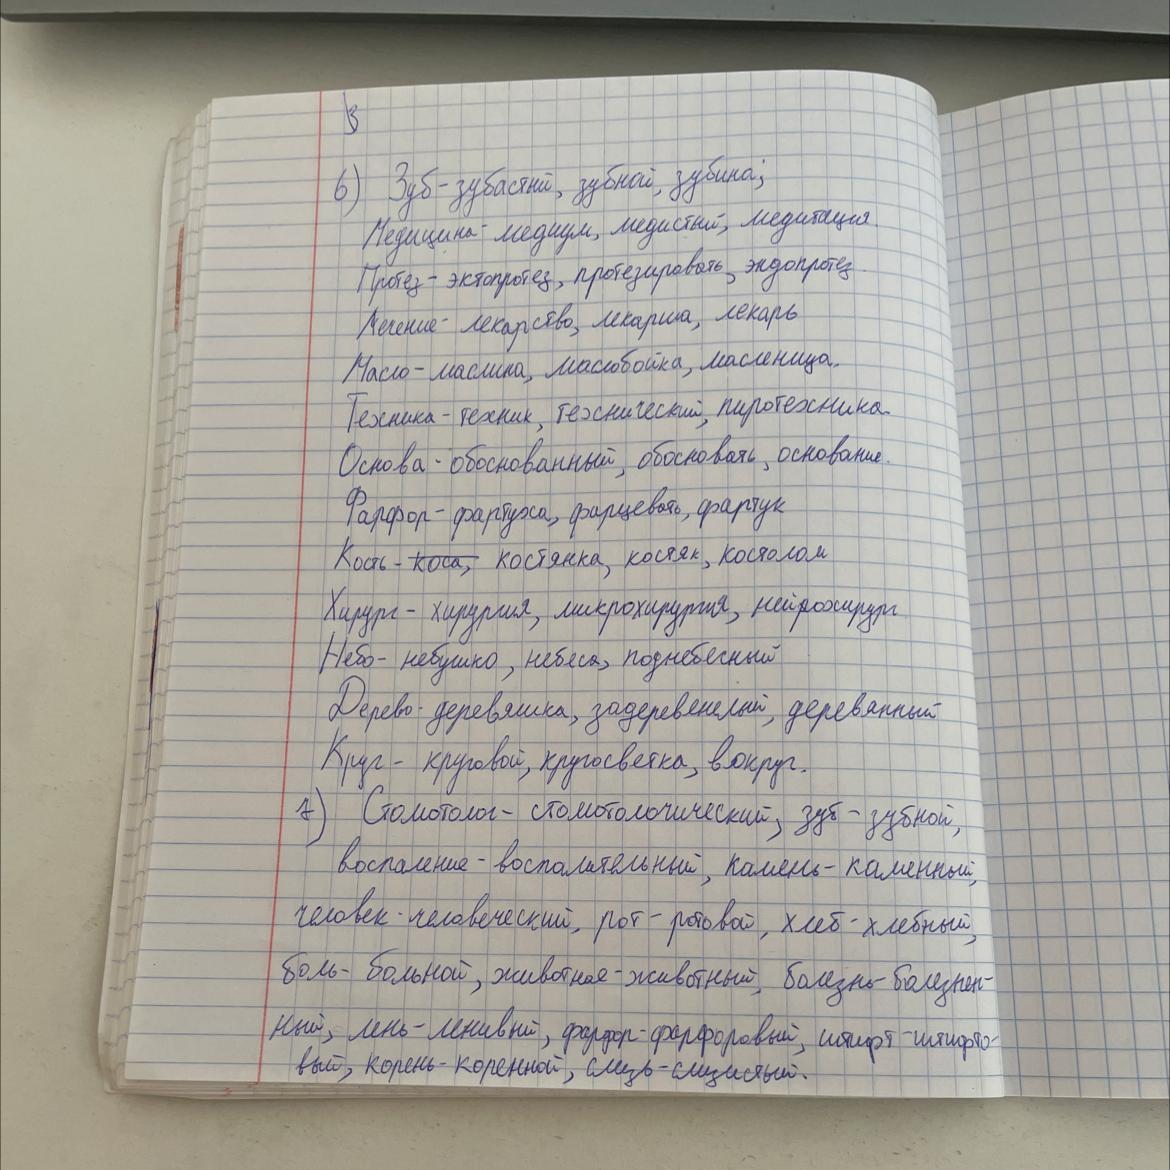 В
6) Зуб-зубастый, зубной, зубина;
Медицина-медиум, медистый, медитация.
Протез-эктопротез, протезировать, эндопротез.
Лечение-лекарство, лекарша, лекарь
Масло-маслина, маслобойка, масленица.
Техника-техник, технический, пиротехника.
Основа-обоснованный, обосновать, основание.
Фарфор-фартуха, фарцевать, фартук
Кость-коса, костянка, костяк, костолом
Хирург-хирургия, микрохирургия, нейрохирург
Небо-небушко, небеса, поднебесный
Дерево-деревяшка, задеревенелый, деревянный
Круг-круговой, кругосветка, вокруг.
7) Стомотолог-стомотологический, зуб-зубной,
воспаление-воспалительный, камень-каменный,
человек-человеческий, рот-ротовой, хлеб-хлебный,
боль-больной, животное-животный, болезнь-болезнен-
ный, лень-ленивый, фарфор-фарфоровый, штифт-штифто-
вый, корень-коренной, слизь-слизистый.